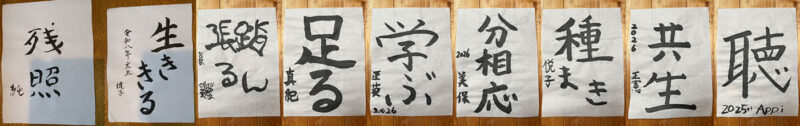 残照
生ききる
令和八年元旦
踏ん
張る
足る
真紀
学ぶ
2026
分相応
2026
美保
種まき
悦子
共生
2026
聴
2025 Appi